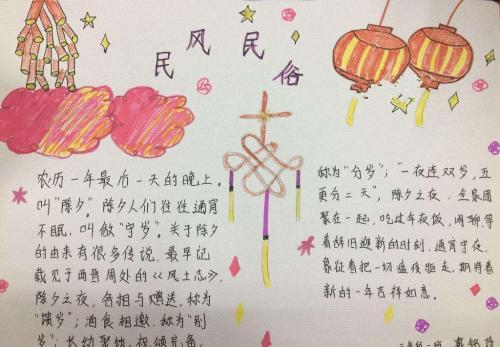 民风民俗
农历一年最后一天的晚上,
叫"除夕"。除夕人们往往通宵
不眠,叫做"守岁"。关于除夕
的由来有很多传说,最早记
载见于西晋周处的《风土志》,
除夕之夜,各相与赠送,称为
"馈岁";酒食相邀,称为"别
岁";长幼聚饮,祝颂完备,
称为"分岁";"一夜连双岁,五
更分二天",除夕之夜,全家团
聚在一起,吃过年夜饭,闲聊等
着辞旧迎新的时刻,通宵守夜,
象征着把一切瘟疫驱走,期待着
新的一年吉祥如意。